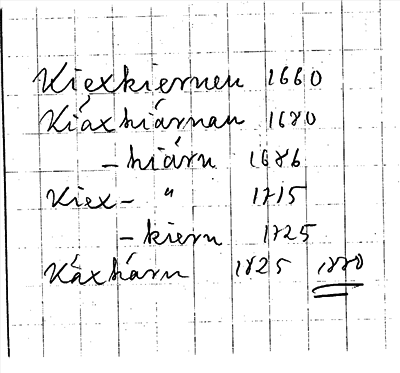 Kiexkiernen 1660
Kiäxkiärnan 1680
- kiärn 1686
Kiex- " 1715
- kiern 1725
Käxkärn 1825 1880